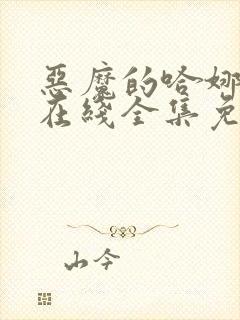 惡魔的哈娜
在綫全集免
山今